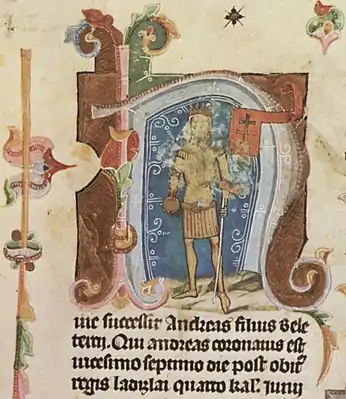 uic successit Andreas filius Bele
tertij. Qui andreas coronatus est
uicesimo septimo die post obitum
regis ladizlai quarto kal. Junij